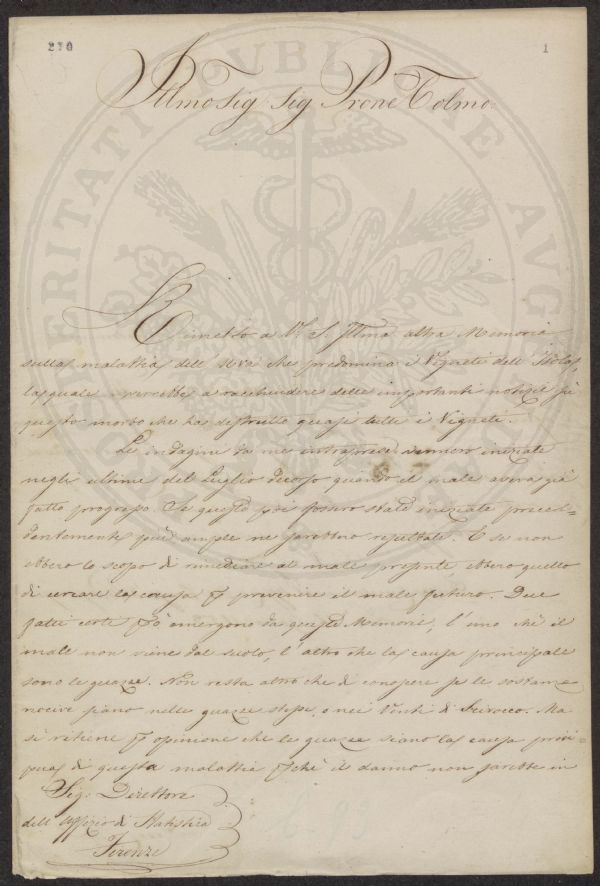 230
1
Illmo Sig: Sig Prone Colmo
Rimetto a V. S. Illma altra Memoria
sulla malattia dell' uva che predomina i Vigneti dell' Isola,
la quale verrebbe a racchiudere delle importanti notizie su
questo morbo che ha distrutto quasi tutte i Vigneti.
Le indagini da me intraprese vennero iniziate
negli ultimi del Luglio decorso quando il male aveva già
fatto progresso. Se queste poi fossero state iniziate preced=
dentemente più ample ne sarebbero resultate. E se non
ebbero lo scopo di rimediare al male presente ebbero quello
di cercare la causa p prevenire il male futuro. Due
fatti certi però emergono da queste Memorie, l'uno ch'è il
male non viene dal suolo, l'altro che la causa principale
sono le guazze. Non resta altro che di conoscere se le sostanze
nocive siano nelle guazze stesse, o nei Venti di Scirocco. Ma
si ritiene p opinione che le guazze siano la causa prin=
pua di questa malattia pchè il danno non sarebbe in
Sig: Direttore
dell' Uffizio di Statistica
Firenze
PROSPERITATI PUBLICAE AUG